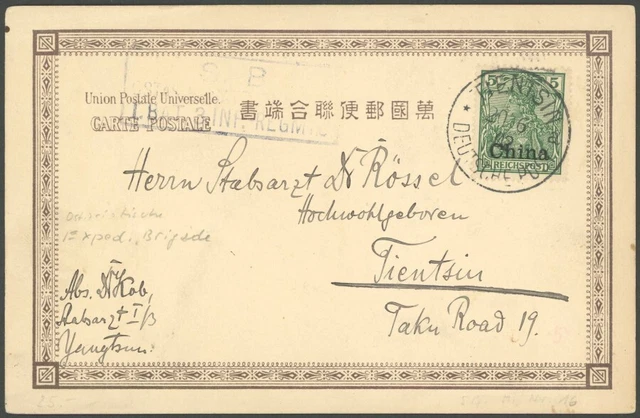 S. B.
1. BAT. 3. INF. REGM
Union Postale Universelle.
CARTE POSTALE
書端合聯便郵國萬
5 5
China
REICHSPOST
TIENTSIN
DEUTSCHE POST
Herrn Stabsarzt Dr Rössel
Hochwohlgeboren
Tientsin
Taku Road 19.
Ostasiatische
Exped. Brigade
Abs. Dr Kob,
Stabsarzt I/3
Yangtsun.
25.-